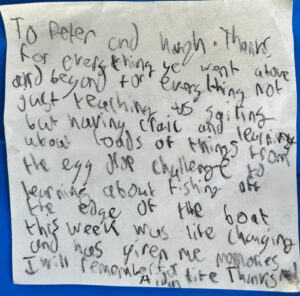 To Peter and hugh. Thanks
for everything ye went above
and beyond for everything not
just teaching us sailing
but having craic and learning
about loads of things from
the egg drop challenge to
learning about fishing off
the edge of the boat
this week was life changing
and has given me memories
I will remember for
life Thanks